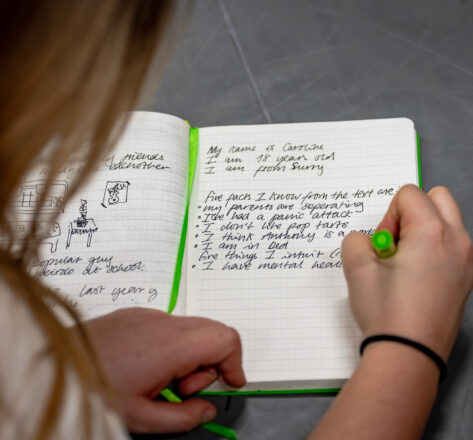 friends
eachother
popular guy
weirdo at school.
last year
My name is Caroline
I am 18 years old
I am from Surry
Five facts I know from the text are
• my parents are separating
• I've had a panic attack
• I don't like pop tarts
• I think Anthony is a
• I am in bed
Five things I intuit
• I have mental